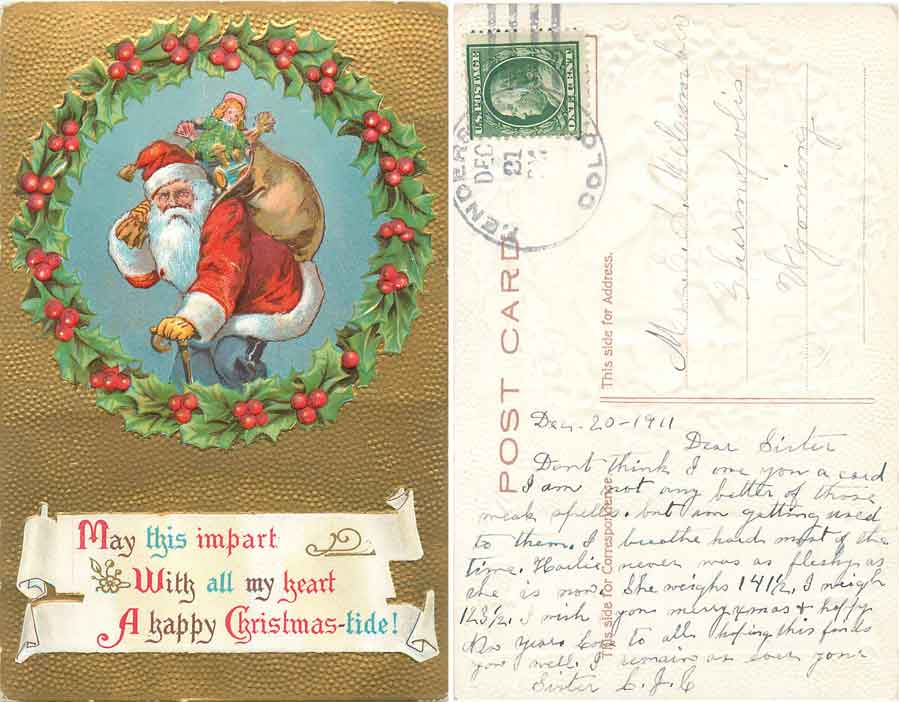 May this impart
With all my heart
A happy Christmas-tide!
U.S. POSTAGE
ONE CENT
DEC
21
COLO
POST CARD
This side for Address.
This side for Correspondence
Thermopolis
Wyoming
Dec. 20-1911
Dear Sister
Dont think I owe you a card
I am not any better of those
weak spells. but am getting used
to them. I breathe hard most of the
time. never was as fleshy as
she is now. She weighs 141½. I weigh
123½. I wish you merry xmas & happy
New years to all hoping this finds
you well. I remain as ever your
Sister